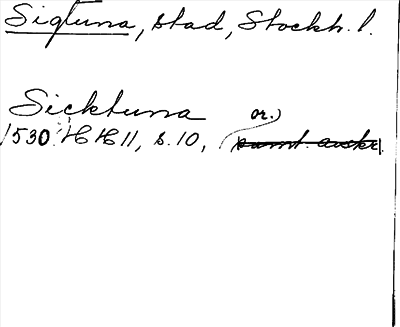 Sigtuna, stad, Stockh. l.
Sicktuna
or.)
1530 HH 11, s. 10, (samt. avskr.